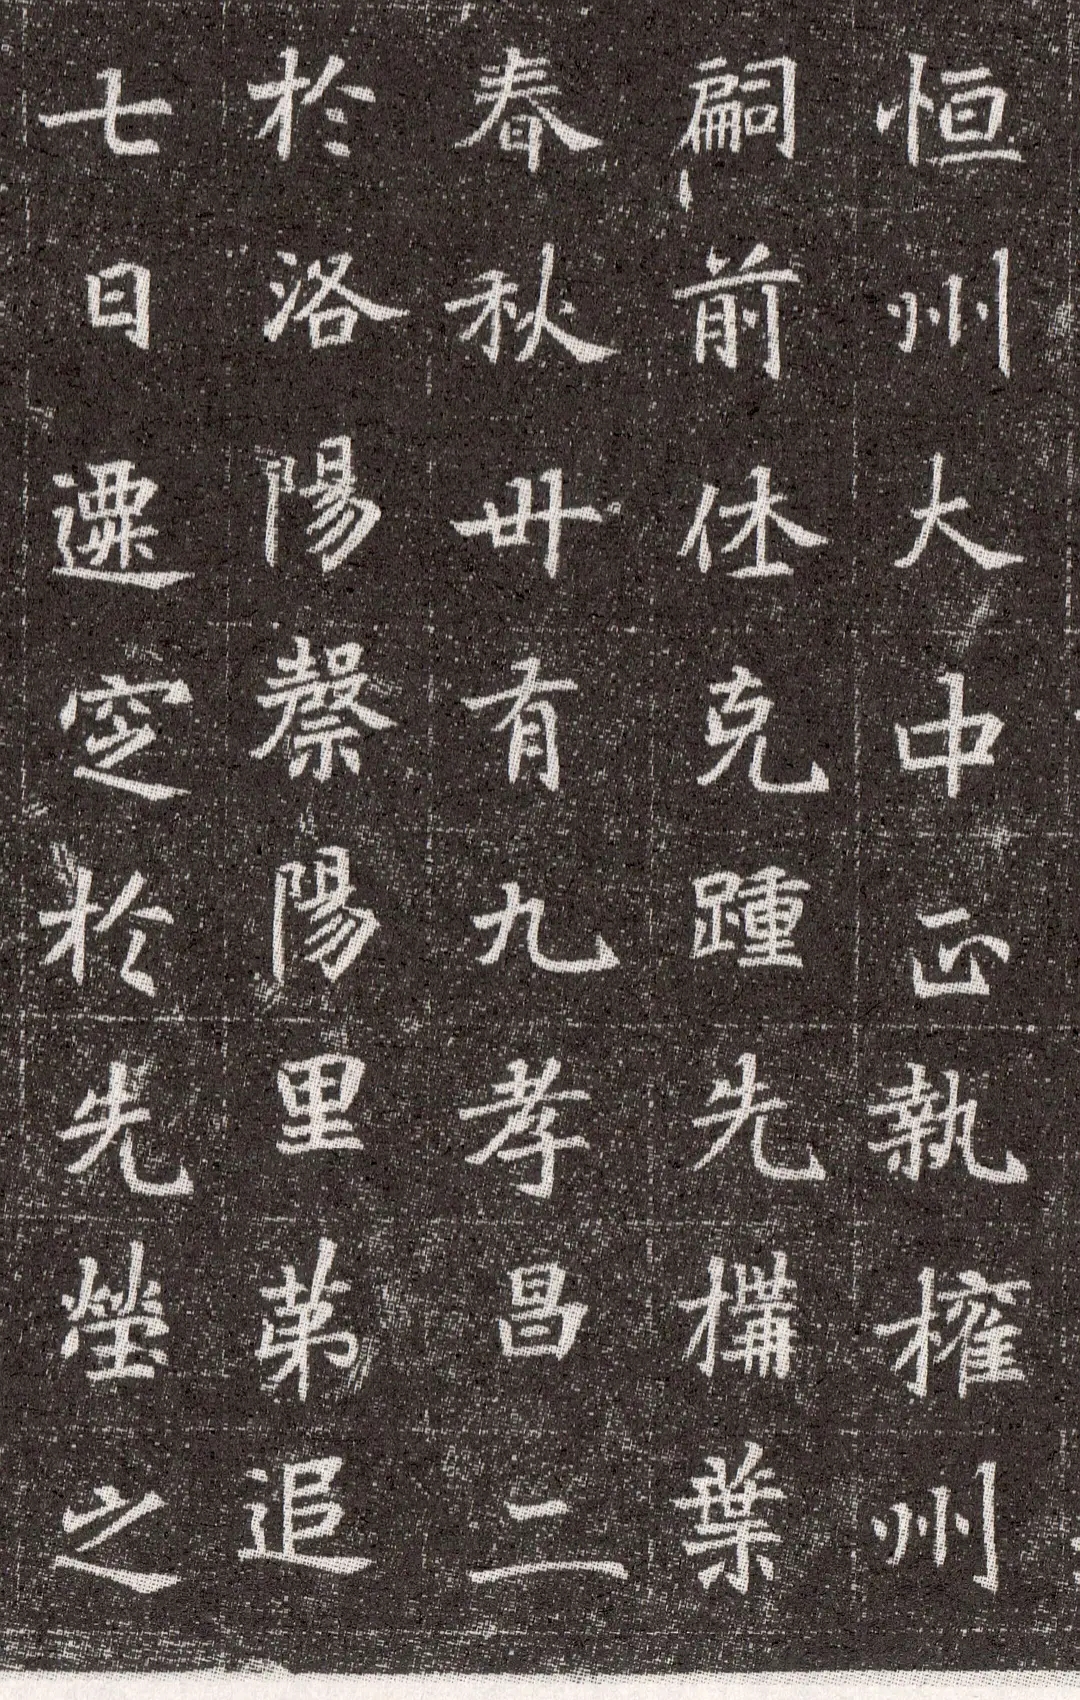 恒州大中正執權州
嗣前休克踵先構葉
春秋卌有九孝昌二
於洛陽穀陽里第追
七日遷窆於先塋之